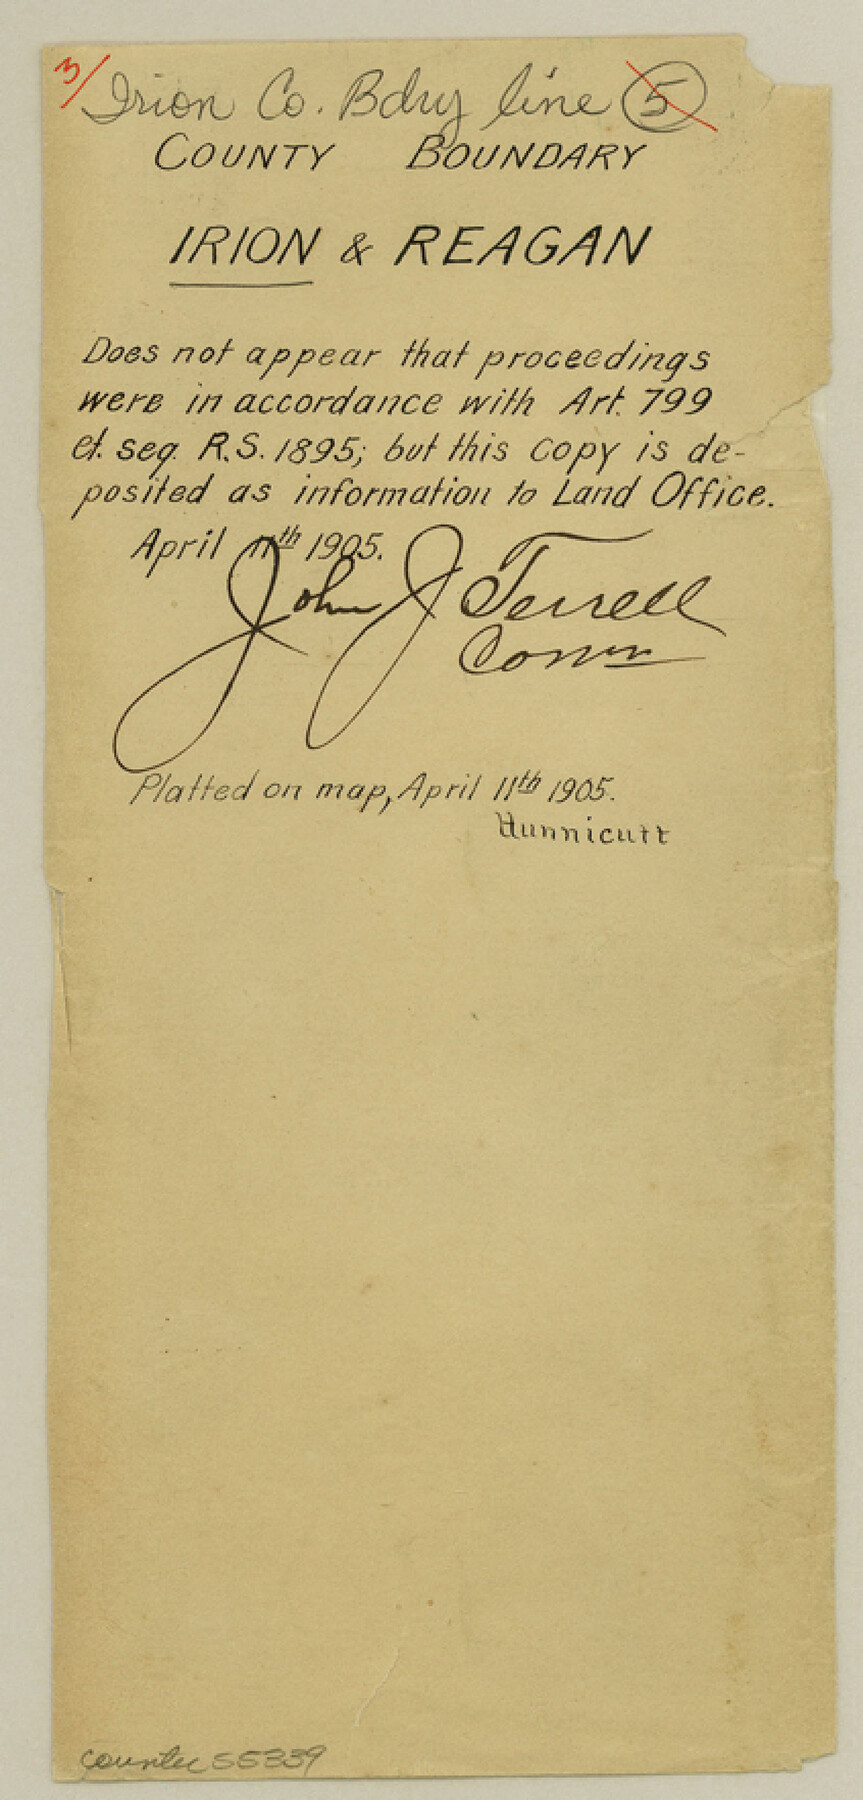 3/
Irion Co. Bdry line 5
COUNTY BOUNDARY
IRION & REAGAN
Does not appear that proceedings
were in accordance with Art. 799
et. seq. R.S. 1895; but this copy is de-
posited as information to Land Office.
April 11th 1905.
John J Terrell
Comm
Platted on map, April 11th 1905.
Hunnicutt
counter 55339